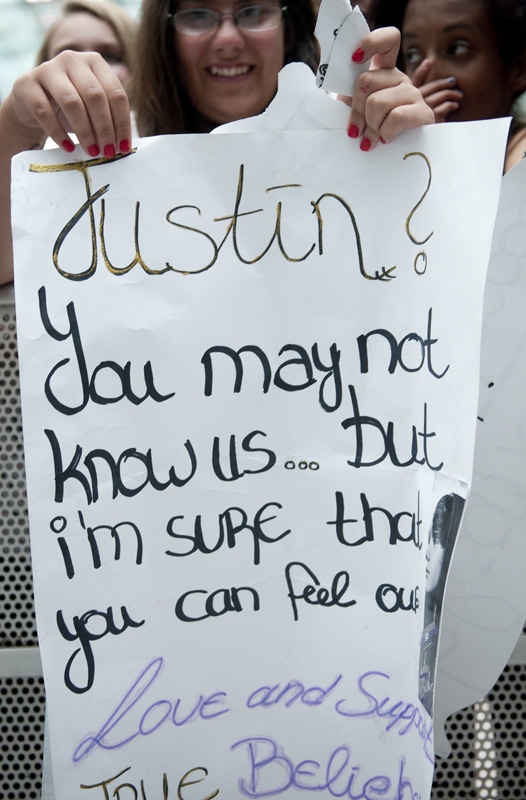 Justin?
You may not
know us... but
i'm SURE that
you can feel our
Love and Support
True Belieb